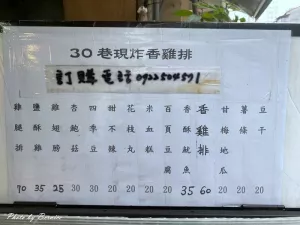 30 巷現炸香雞排
訂購電話 0922504571
雞腿排 70
鹽酥雞 35
雞翅膀 25
杏鮑菇 20
四季豆 20
甜不辣 20
花枝丸 20
米血糕 20
百頁豆腐 20
香酥魷魚 35
香雞排 60
甘梅地瓜 20
薯條 20
豆干 20